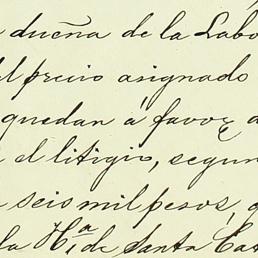 dueña de la Labo
el precio asignado
quedan á favor d
el litigio, segun
seis mil pesos, q
la H.ª de Santa Cat